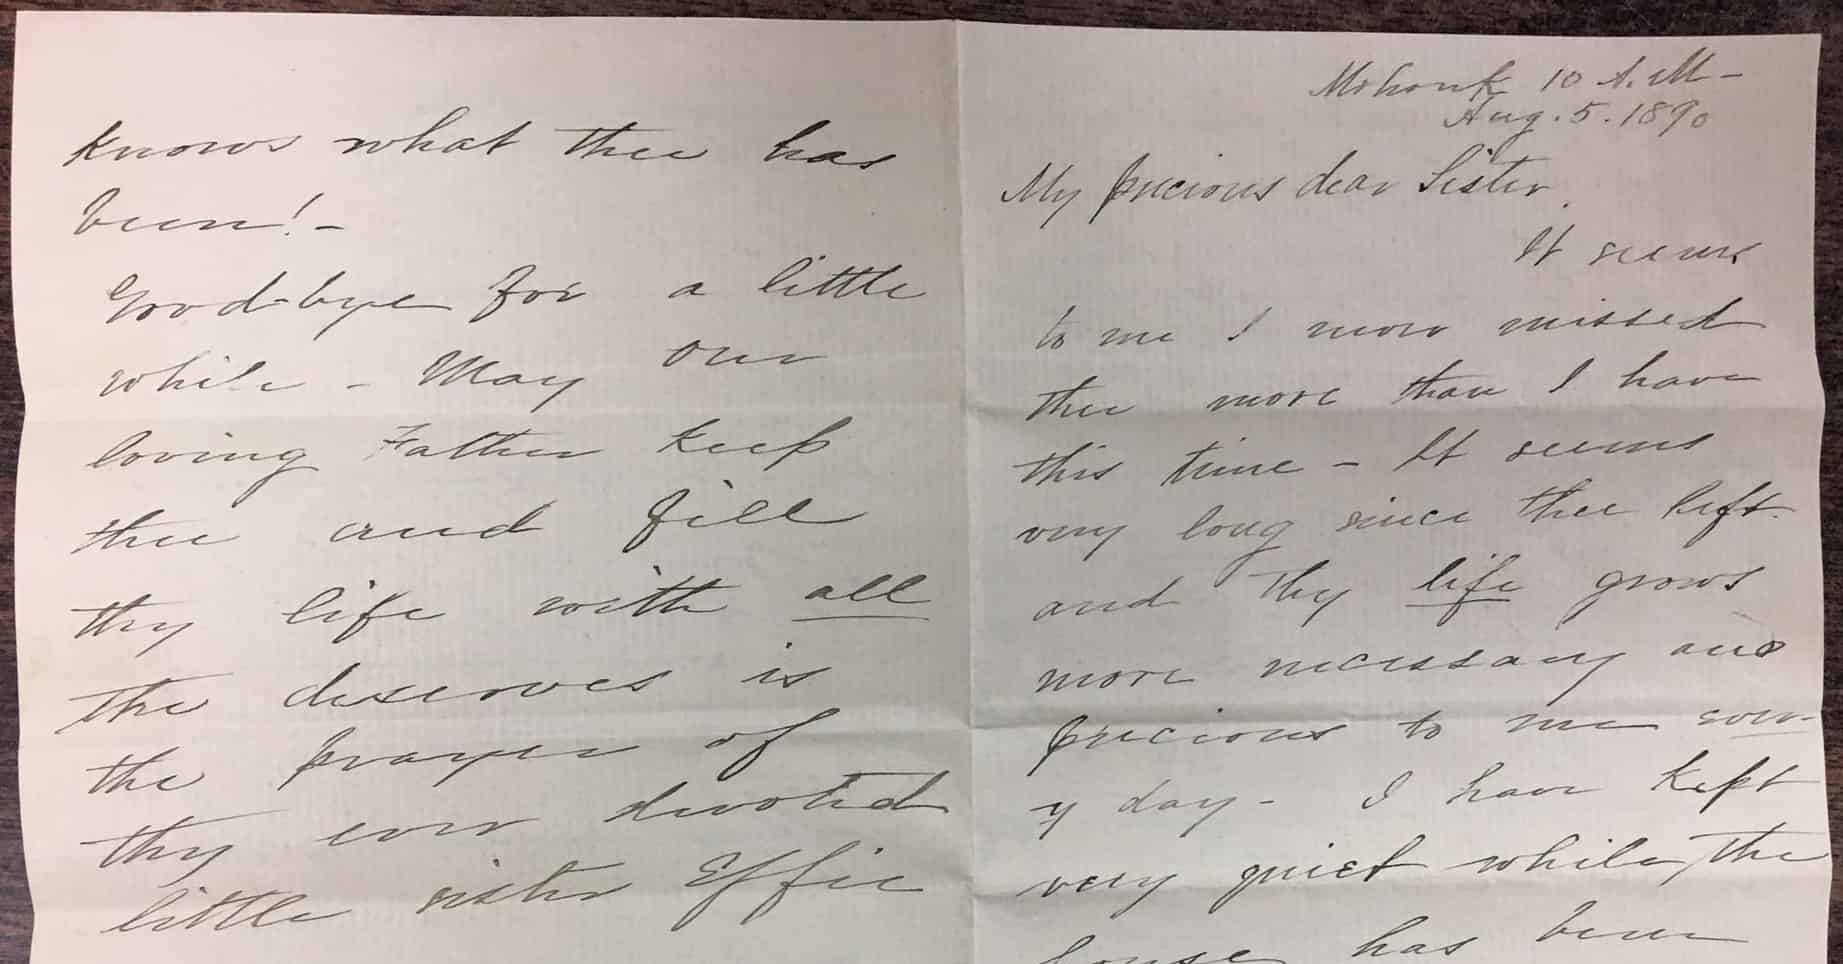 Mohonk 10 A.M-
Aug. 5. 1890
My precious dear Sister,
It seems
to me I never missed
thee more than I have
this time - It seems
very long since thee left.
and thy life grows
more necessary and
precious to me ever-
y day - I have kept
very quiet while the
house has been
knows what thee has
been! -
Good-bye for a little
while - May our
loving Father keep
thee and fill
thy life with all
the deserves is
the prayer of
thy ever devoted
little sister Effie